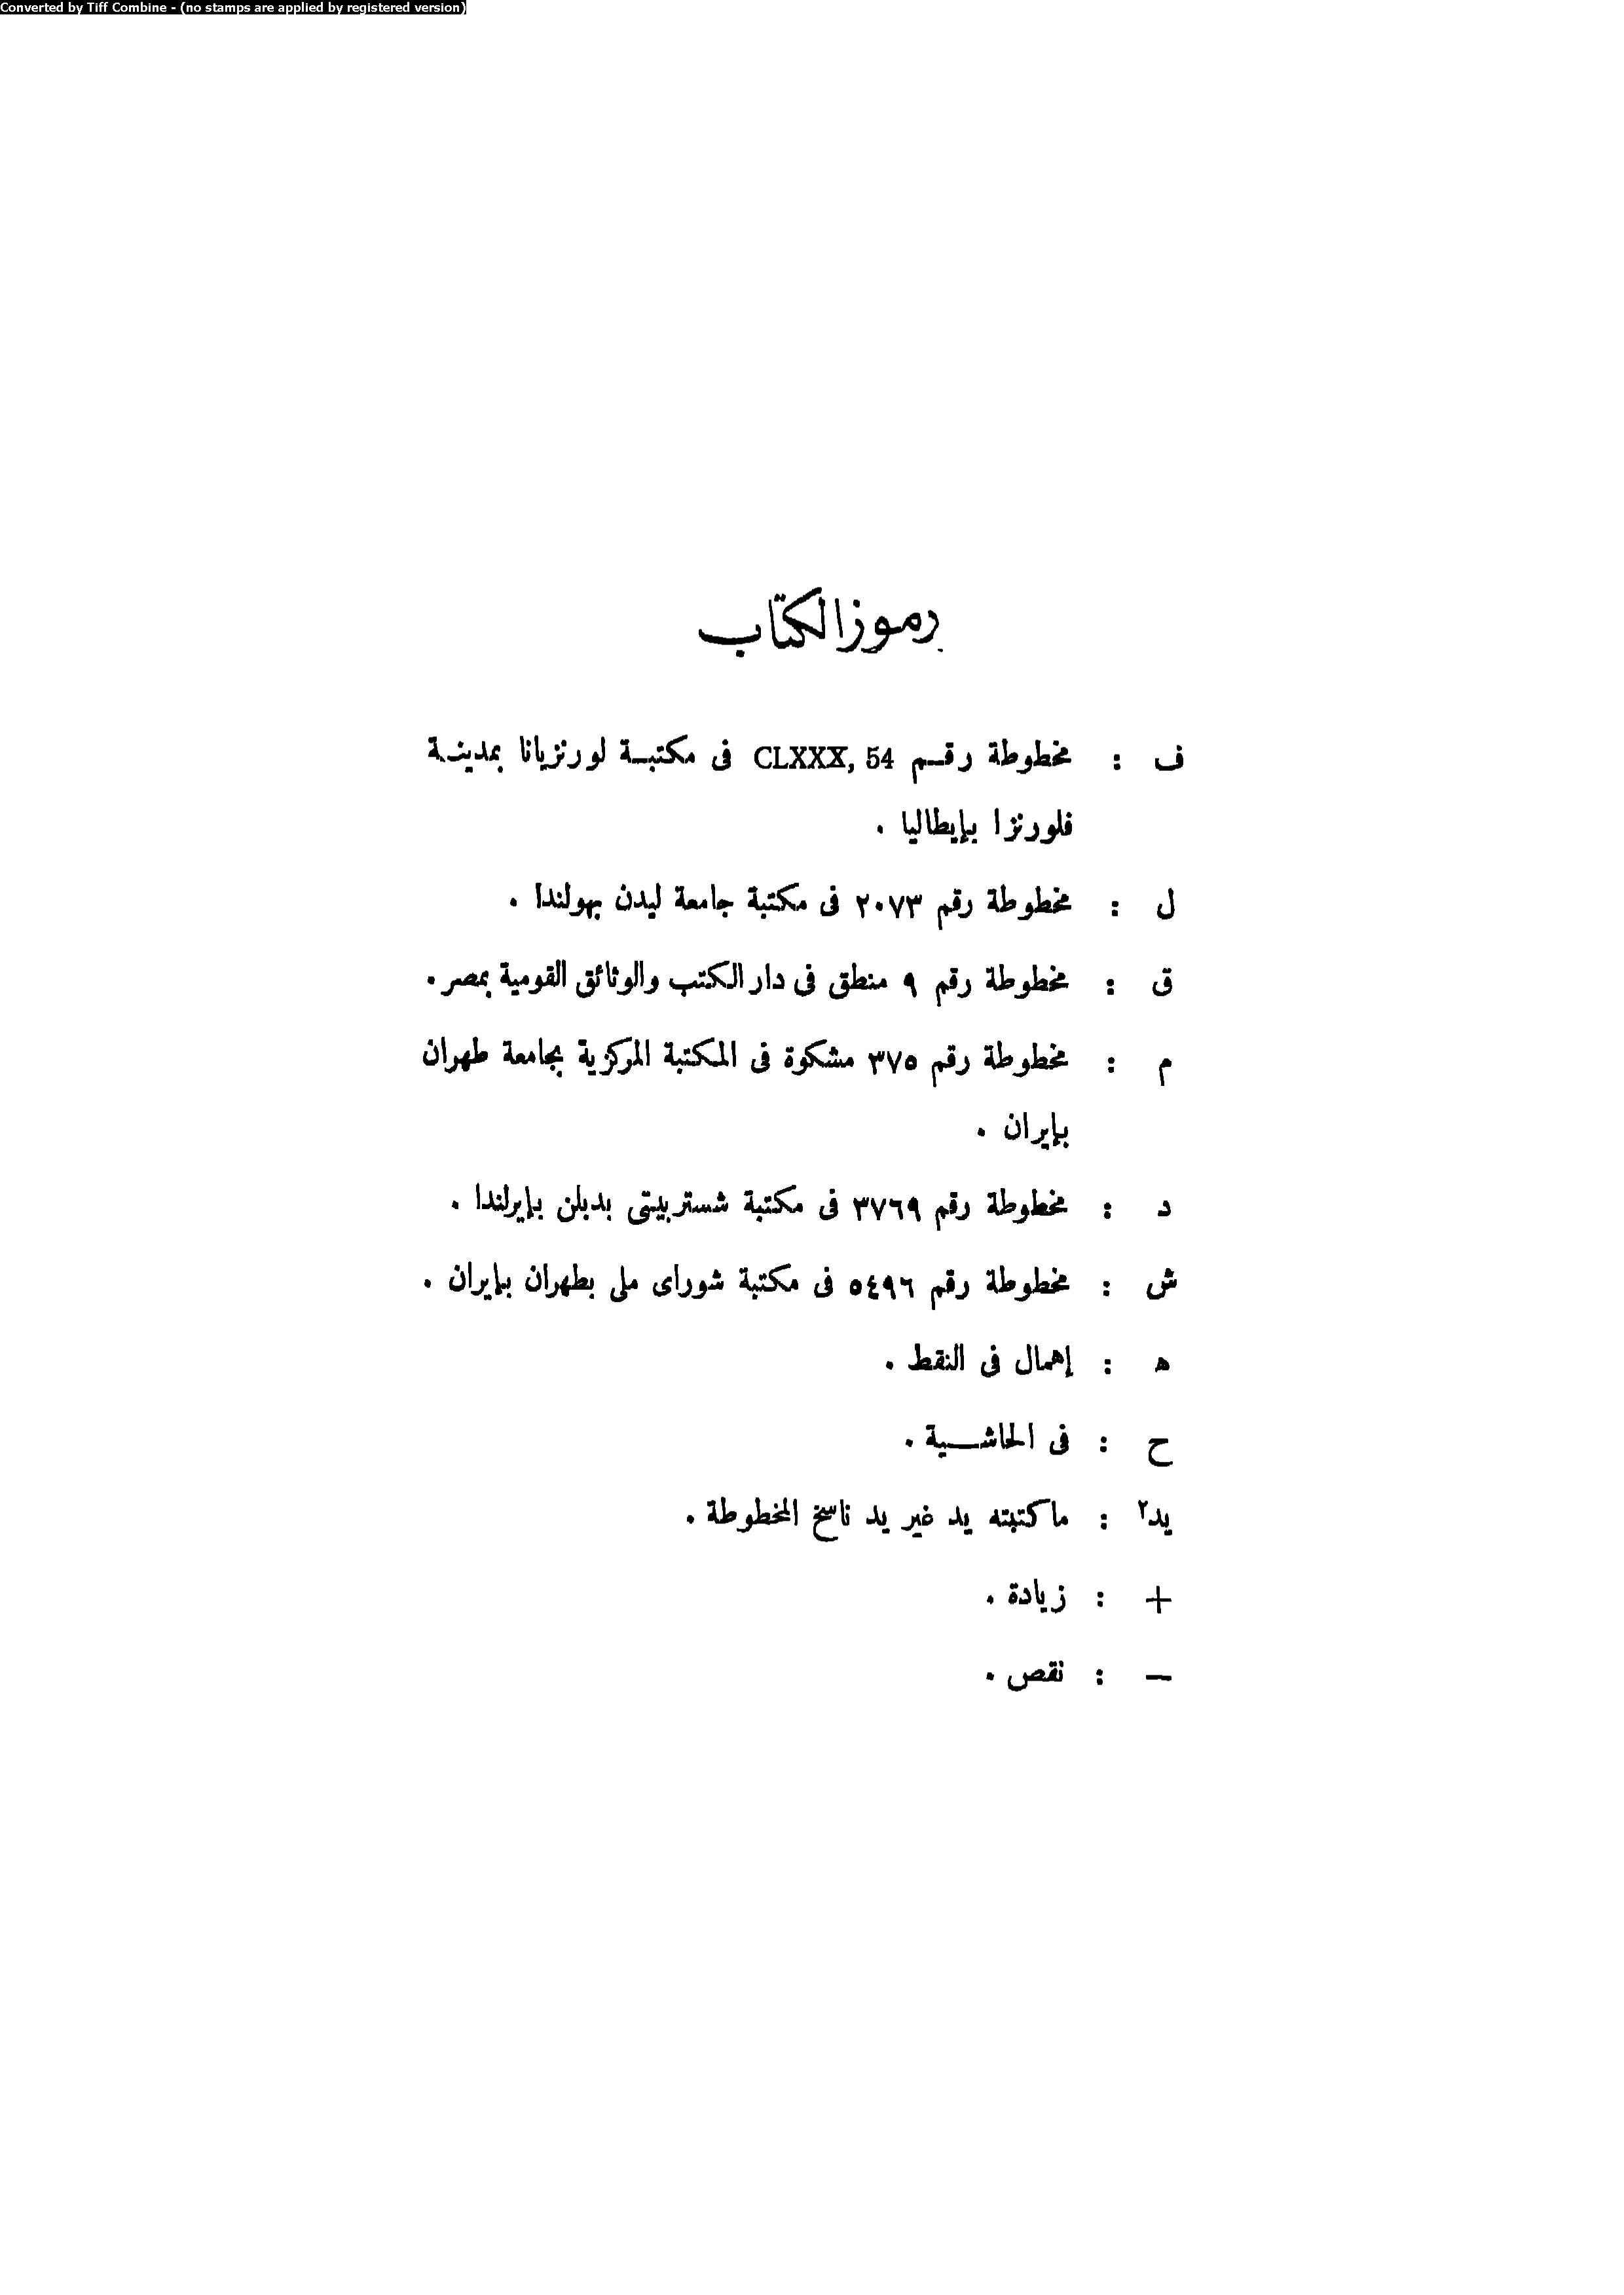 Converted by Tiff Combine - (no stamps are applied by registered version)
رموز الكتاب
ف : مخطوطة رقـم CLXXX, 54 فى مكتبـة لورنزيانا بمدينـة
فلورنزا بإيطاليا .
ل : مخطوطة رقم ٢٠٧٣ فى مكتبة جامعة ليدن بهولندا .
ق : مخطوطة رقم ٩ منطق فى دار الكتب والوثائق القومية بمصر .
م : مخطوطة رقم ٣٧٥ مشكوة فى المكتبة المركزية بجامعة طهران
بإيران .
د : مخطوطة رقم ٣٧٦٩ فى مكتبة شستربيتى بدبلن بإيرلندا .
ش : مخطوطة رقم ٥٤٩٦ فى مكتبة شوراى ملى بطهران بإيران .
ه : إهمال فى النقط .
ح : فى الحاشـــية .
يد٢ : ما كتبته يد غير يد ناسخ المخطوطة .
+ : زيادة .
— : نقص .